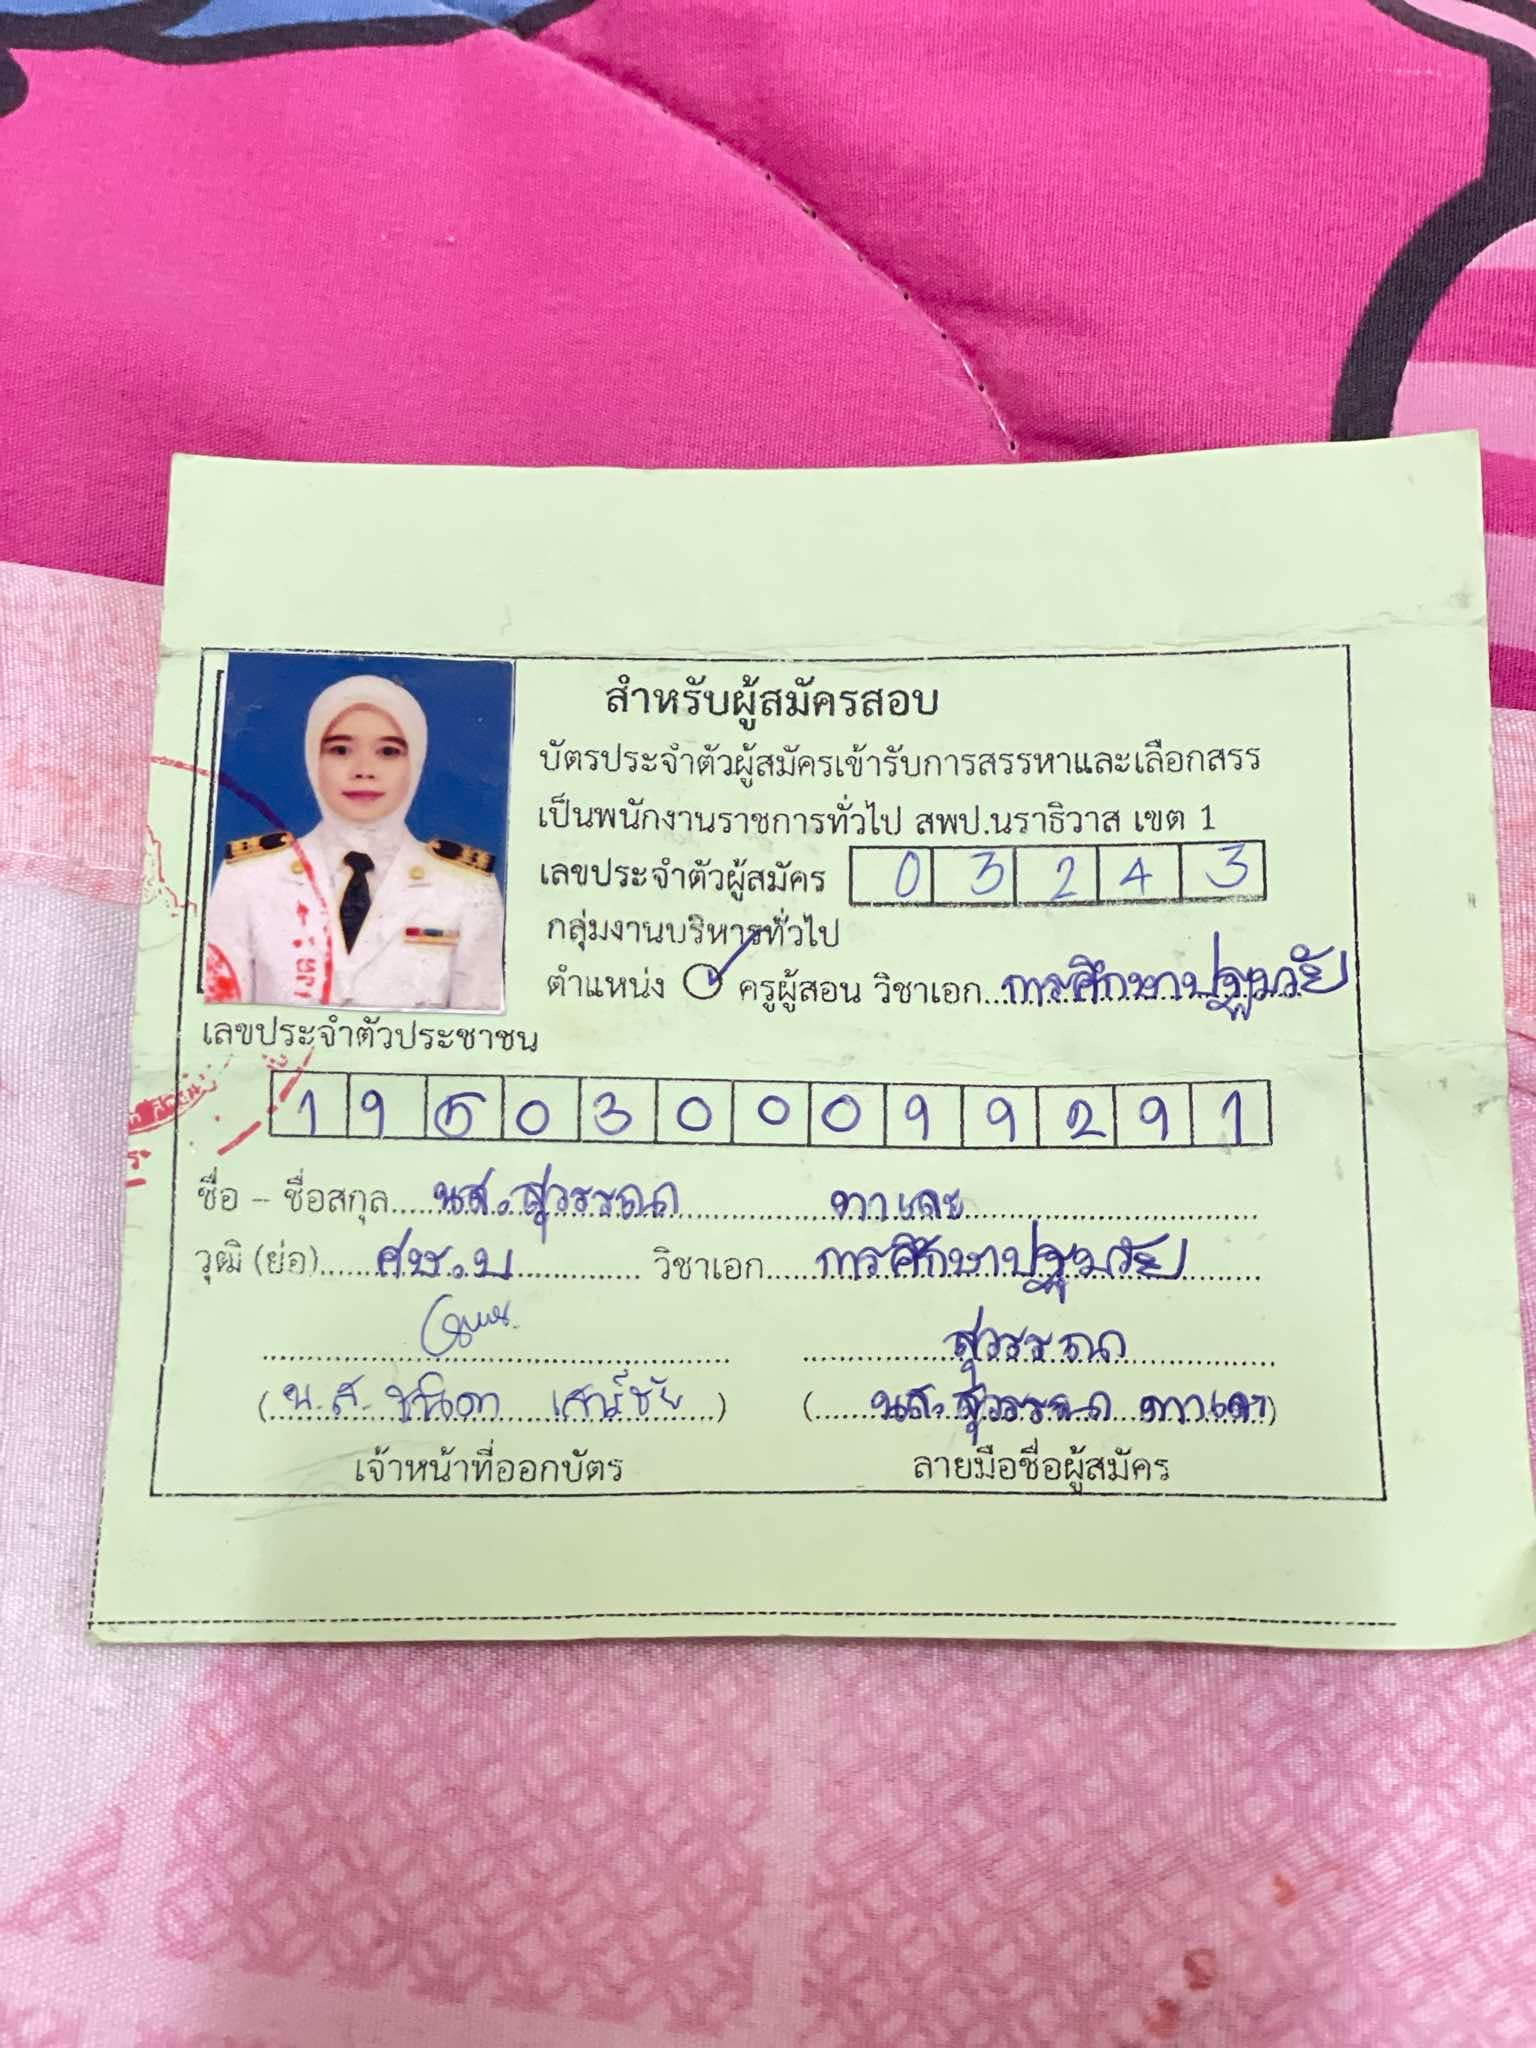 สำหรับผู้สมัครสอบ
บัตรประจำตัวผู้สมัครเข้ารับการสรรหาและเลือกสรร
เป็นพนักงานราชการทั่วไป สพป.นราธิวาส เขต 1
เลขประจำตัวผู้สมัคร 0 3 2 4 3
กลุ่มงานบริหารทั่วไป
ตำแหน่ง ครูผู้สอน วิชาเอก...การศึกษาปฐมวัย
เลขประจำตัวประชาชน
1 9 6 0 3 0 0 0 9 9 2 9 1
ชื่อ - ชื่อสกุล...นส.สุวรรณา
วุฒิ (ย่อ)...ศษ.บ... วิชาเอก...การศึกษาปฐมวัย
สุวรรณา
(น.ส. เสาร์ชัย) (นส.สุวรรณา)
เจ้าหน้าที่ออกบัตร ลายมือชื่อผู้สมัคร